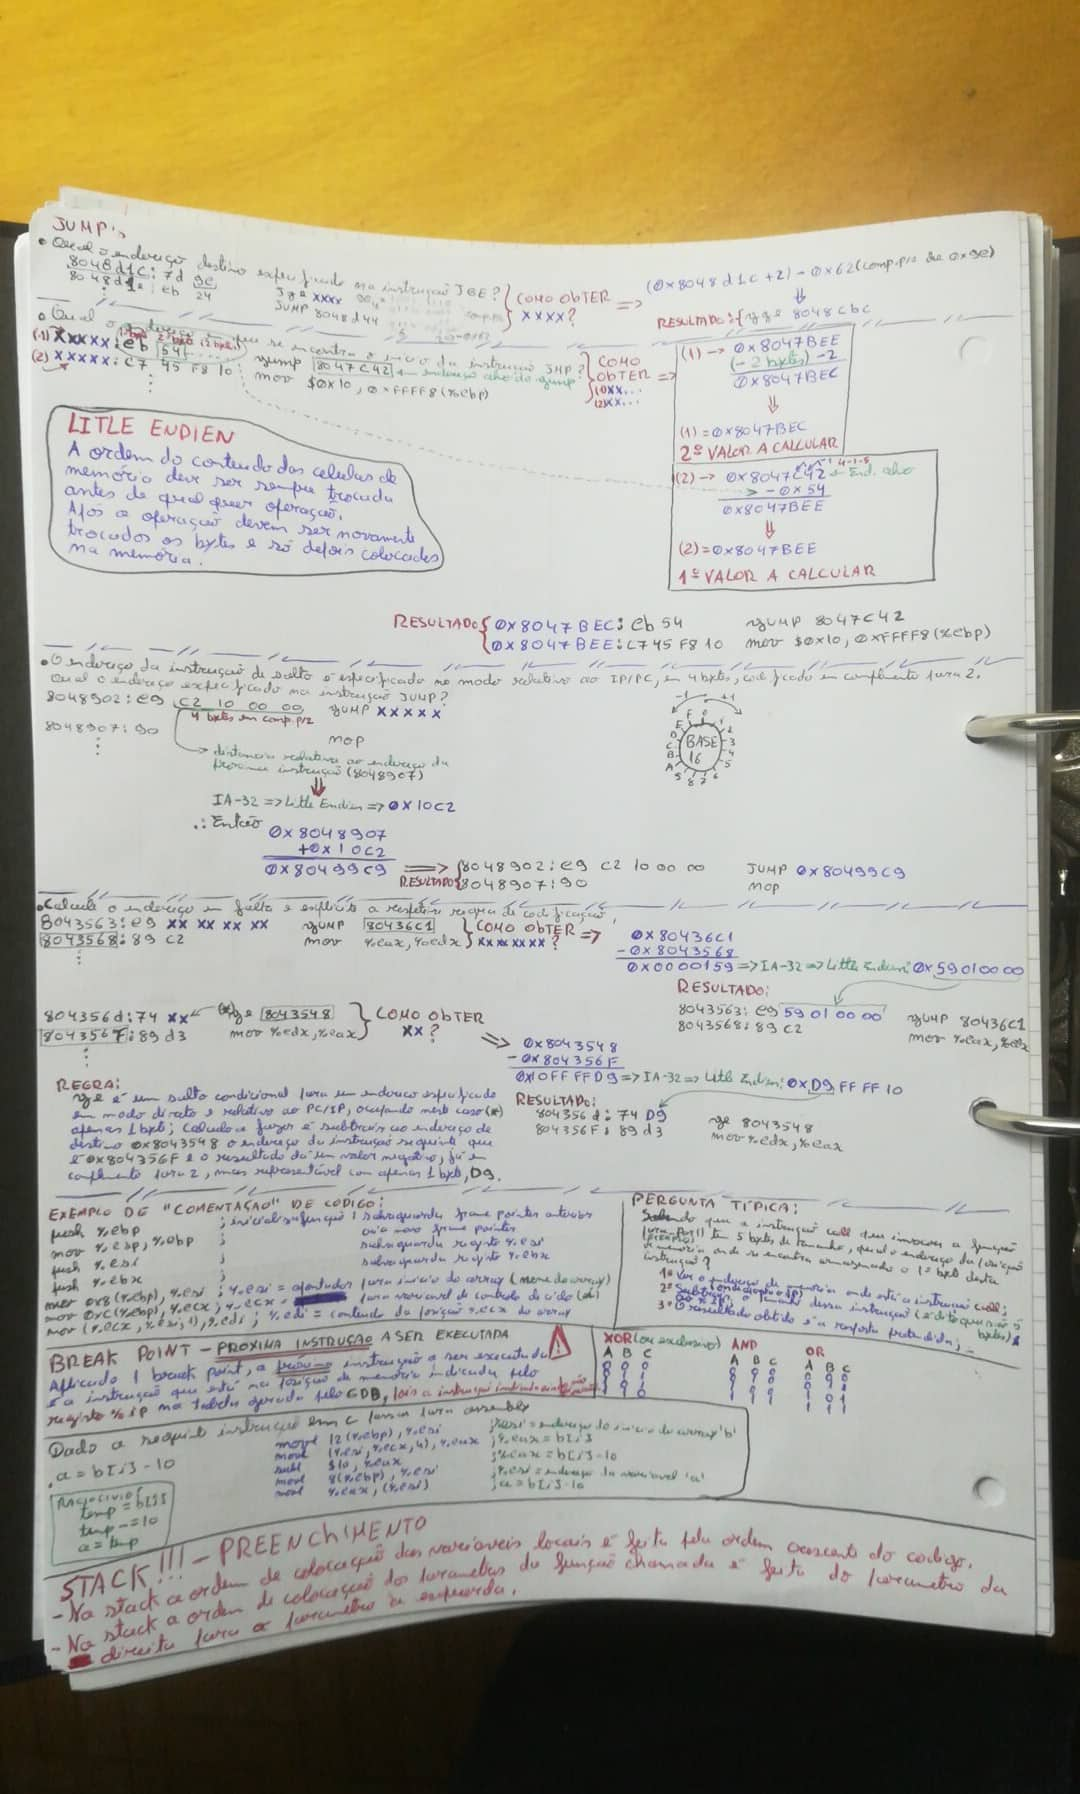 JUMP's
• Qual o endereço destino especificado na instrução JGE?
8048d1c: 7d 9e
8048d1e: eb 24
Jge xxxx
JUMP 8048d44
COMO OBTER
xxxx?
=> (0x8048d1c+2) - 0x62 (comp. p/2 de 0x9e)
RESULTADO: { jge 8048cbc
• Qual o endereço em que se encontra o início da instrução JMP?
(1) xxxxx: eb 54
(2) xxxxx: C7 45 F8 10
jump 8047C42 ← endereço alvo do jump
mov $0x10, 0xFFFF8(%ebp)
COMO
OBTER =>
(1)xx...
(2)xx...
(1) → 0x8047BEE
(-2 bytes) -2
0x8047BEC
(1) = 0x8047BEC
2º VALOR A CALCULAR
(2) → 0x8047C42 ← End. alvo
- 0x54
0x8047BEE
(2) = 0x8047BEE
1º VALOR A CALCULAR
LITLE ENDIEN
A ordem do conteudo das celulas de
memória deve ser sempre trocada
antes de qual quer operação.
Após a operação devem ser novamente
trocados os bytes e só depois colocados
na memória.
RESULTADO { 0x8047BEC: eb 54 jump 8047C42
0x8047BEE: C745 F8 10 mov $0x10, 0xFFFF8(%ebp)
• O endereço da instrução de salto é especificado no modo relativo ao IP/PC, em 4 bytes, codificado em complmento para 2.
Qual o endereço especificado na instrução JUMP?
8048902: e9 C2 10 00 00 jump xxxxx
4 bytes em comp. p/2
8048907: 90 nop
→ distancia relativa ao endereço da
proxima instrução (8048907)
IA-32 => Little Endien => 0x10C2
∴ Então
0x8048907
+0x10C2
0x80499C9
BASE
16
RESULTADO
8048902: e9 C2 10 00 00 JUMP 0x80499C9
8048907: 90 nop
• Calcule o endereço em falta e explicite a respetiva regra de codificação,
8043563: e9 xx xx xx xx jump 80436C1
8043568: 89 C2 mov %eax, %edx
COMO OBTER =>
xxxxxxx?
0x80436C1
- 0x8043568
0x0000159 => IA-32 => Little Endien: 0x59010000
RESULTADO:
8043563: e9 59 01 00 00 jump 80436C1
8043568: 89 C2 mov %eax, %edx
804356d: 74 xx (*) je 8043548
804356F: 89 d3 mov %edx, %eax
COMO OBTER
xx?
0x8043548
- 0x804356F
0x10FF FFD9 => IA-32 => Little Endien: 0xD9 FF FF 10
RESULTADO:
804356d: 74 D9 je 8043548
804356F: 89 d3 mov %edx, %eax
REGRA:
je é um salto condicional para um endereço especificado
em modo direto e relativo ao PC/IP, ocupando neste caso (*)
apenas 1 byte; Calculo a fazer é subtrair ao endereço de
destino 0x8043548 o endereço da instrução seguinte que
é 0x804356F e o resultado dá um valor negativo, já em
complmento para 2, mas representável com apenas 1 byte, D9.
EXEMPLO DE "COMENTAÇÃO" DE CODIGO:
push %ebp ; inicialização função | salvaguarda frame pointer anterior
mov %esp, %ebp ; cria novo frame pointer
push %esi ; salvaguarda registo %esi
push %ebx ; salvaguarda registo %ebx
mov 0x8(%ebp), %esi ; %esi = apontador para inicio do array (nome do array)
mov 0xC(%ebp), %ecx ; %ecx = para variavel de controlo de ciclo
mov (%ecx, %esi, 1), %edi ; %edi = conteudo da posição %ecx do array
PERGUNTA TÍPICA:
Sabendo que a instrução call que invocou a função
tem 5 bytes de tamanho, qual o endereço da posição
de memória onde se encontra armazenado o 1º byte desta
instrução?
1º Ver o endereço de memória onde está a instrução call;
2º Subtrair o tamanho dessa instrução
3º O resultado obtido é a resposta pretendida;
BREAK POINT - PROXIMA INSTRUÇÃO A SER EXECUTADA
Aplicado 1 break point, a próxima instrução a ser executada
é a instrução que está na posição de memória indicada pelo
registo %IP na tabela gerada pelo GDB,
XOR (ou exclusivo) AND OR
A B C A B C A B C
0 0 0 0 0 0 0 0 0
Dado a seguinte instrução em C passar para assembly
a = b[i] - 10
movl 12(%ebp), %esi ; %esi = endereço do inicio do array 'b'
movl (%esi, %ecx, 4), %eax ; %eax = b[i]
subl $10, %eax ; %eax = b[i] - 10
movl 8(%ebp), %esi ; %esi = endereço da variavel 'a'
movl %eax, (%esi) ; a = b[i] - 10
RACIOCIVIO
temp = b[i]
temp -= 10
a = temp
STACK!!! - PREENCHIMENTO
- Na stack a ordem de colocação das variaveis locais é feita pela ordem crescente do codigo.
- Na stack a ordem de colocação dos parametros da função chamada é feito do parametro da
direita para o parametro a esquerda.